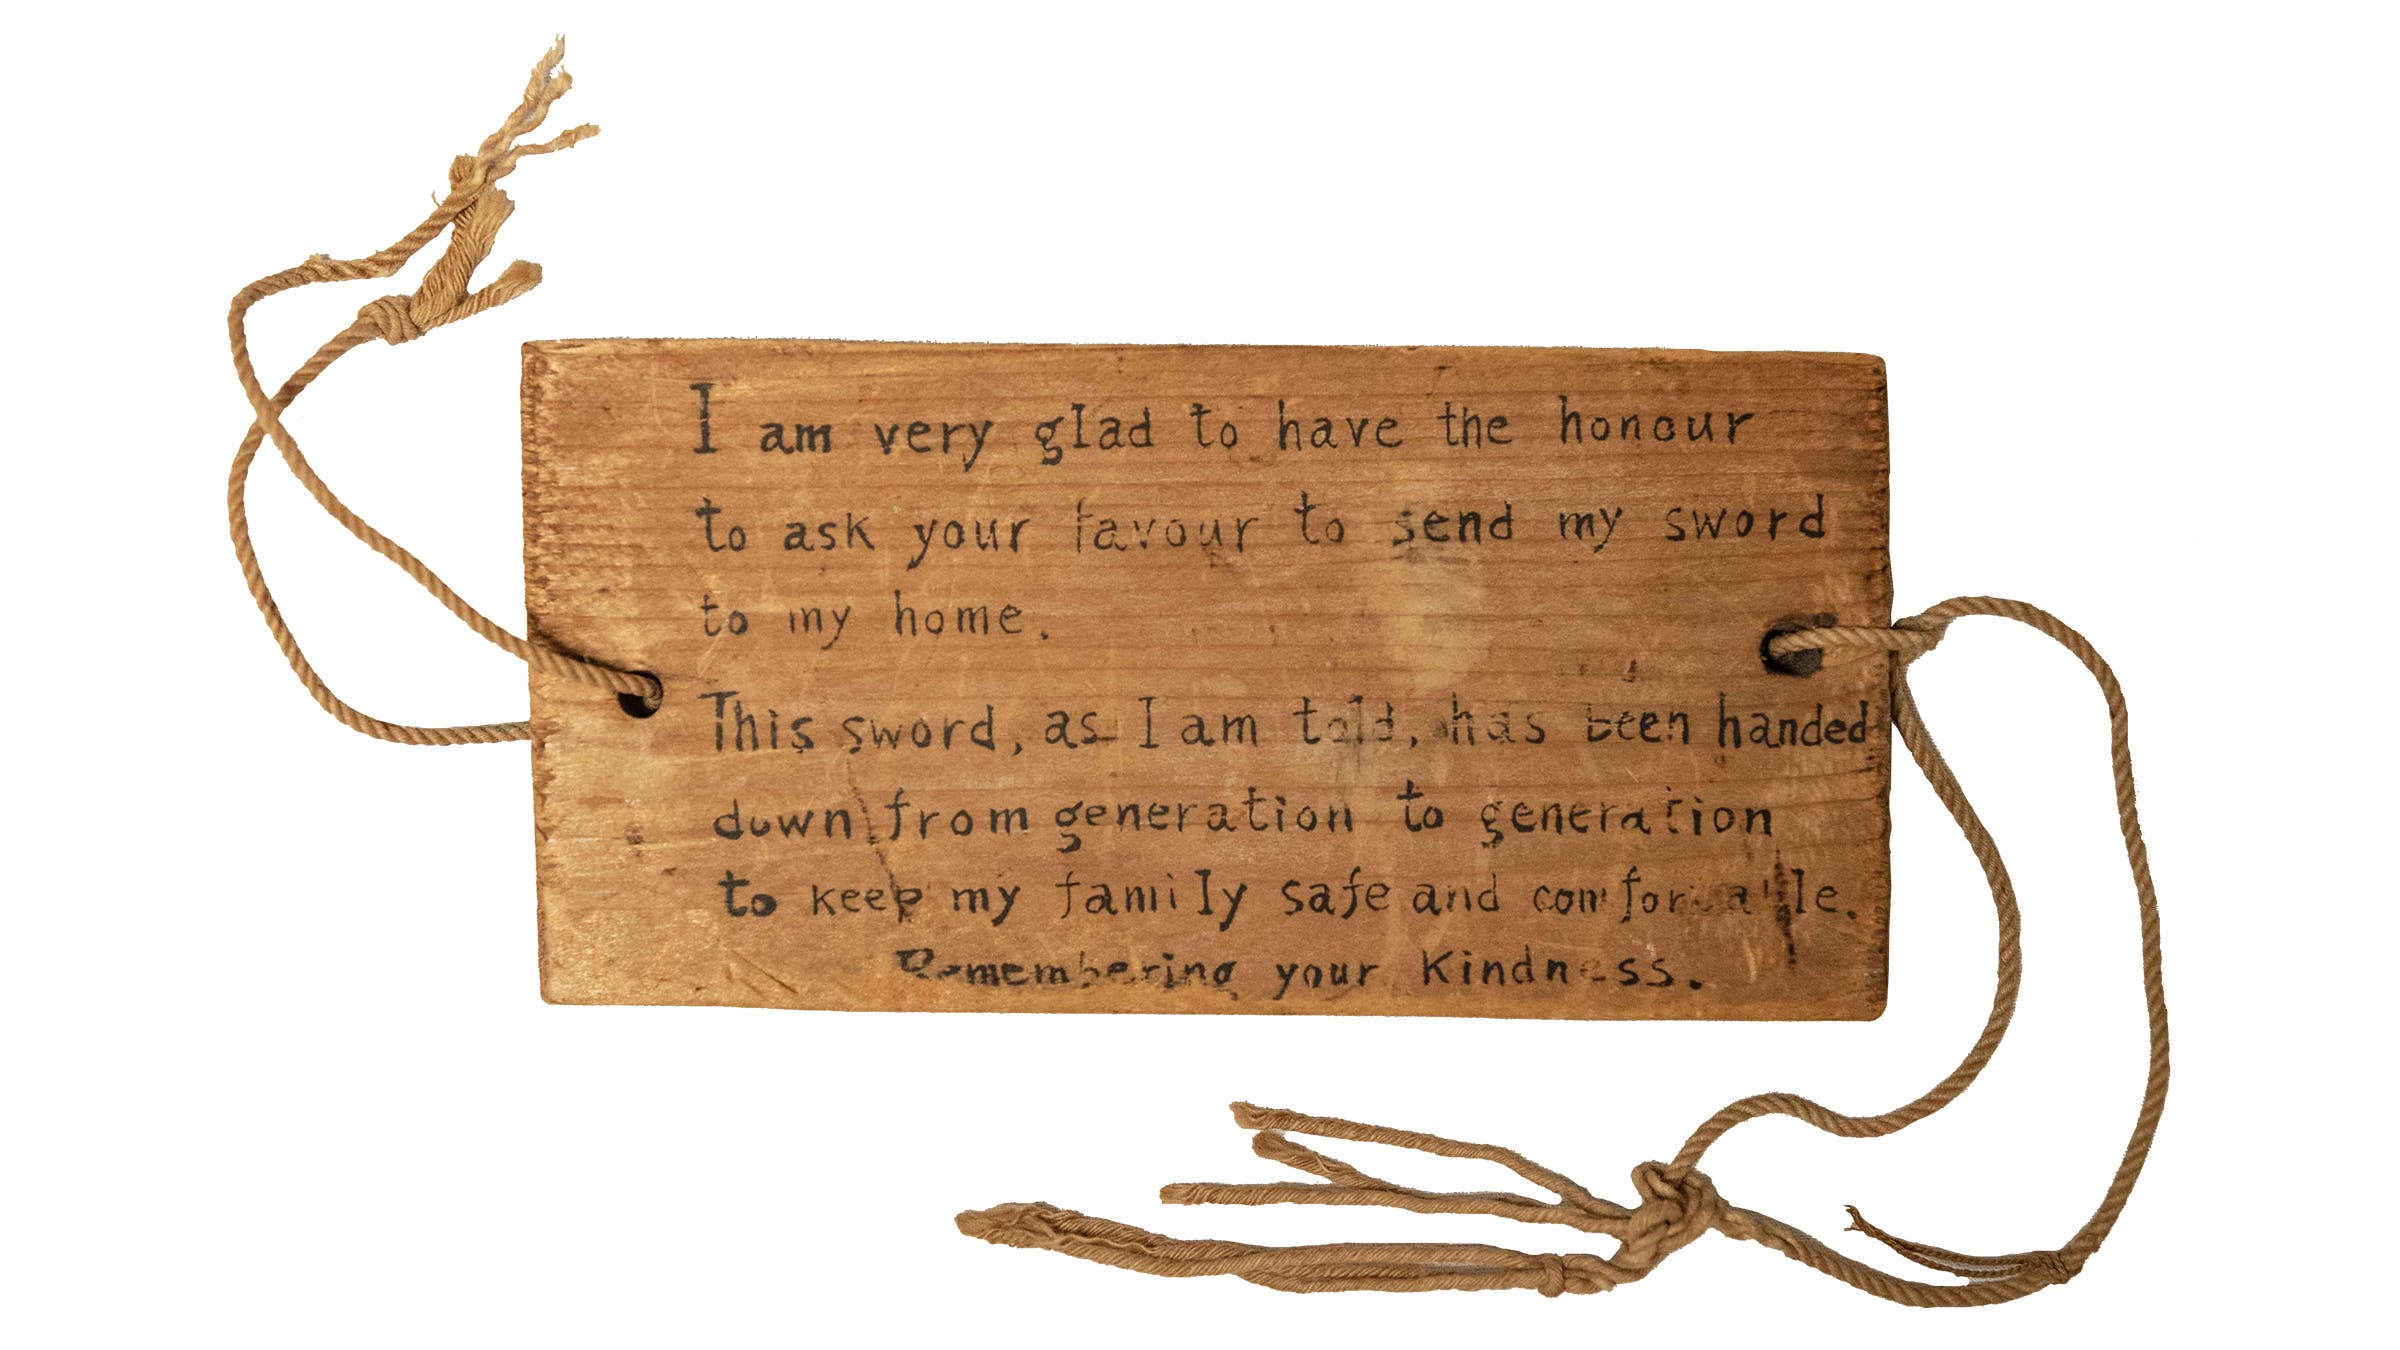 I am very glad to have the honour
to ask your favour to send my sword
to my home.
This sword, as I am told, has been handed
down from generation to generation
to keep my family safe and comfortable.
Remembering your kindness.